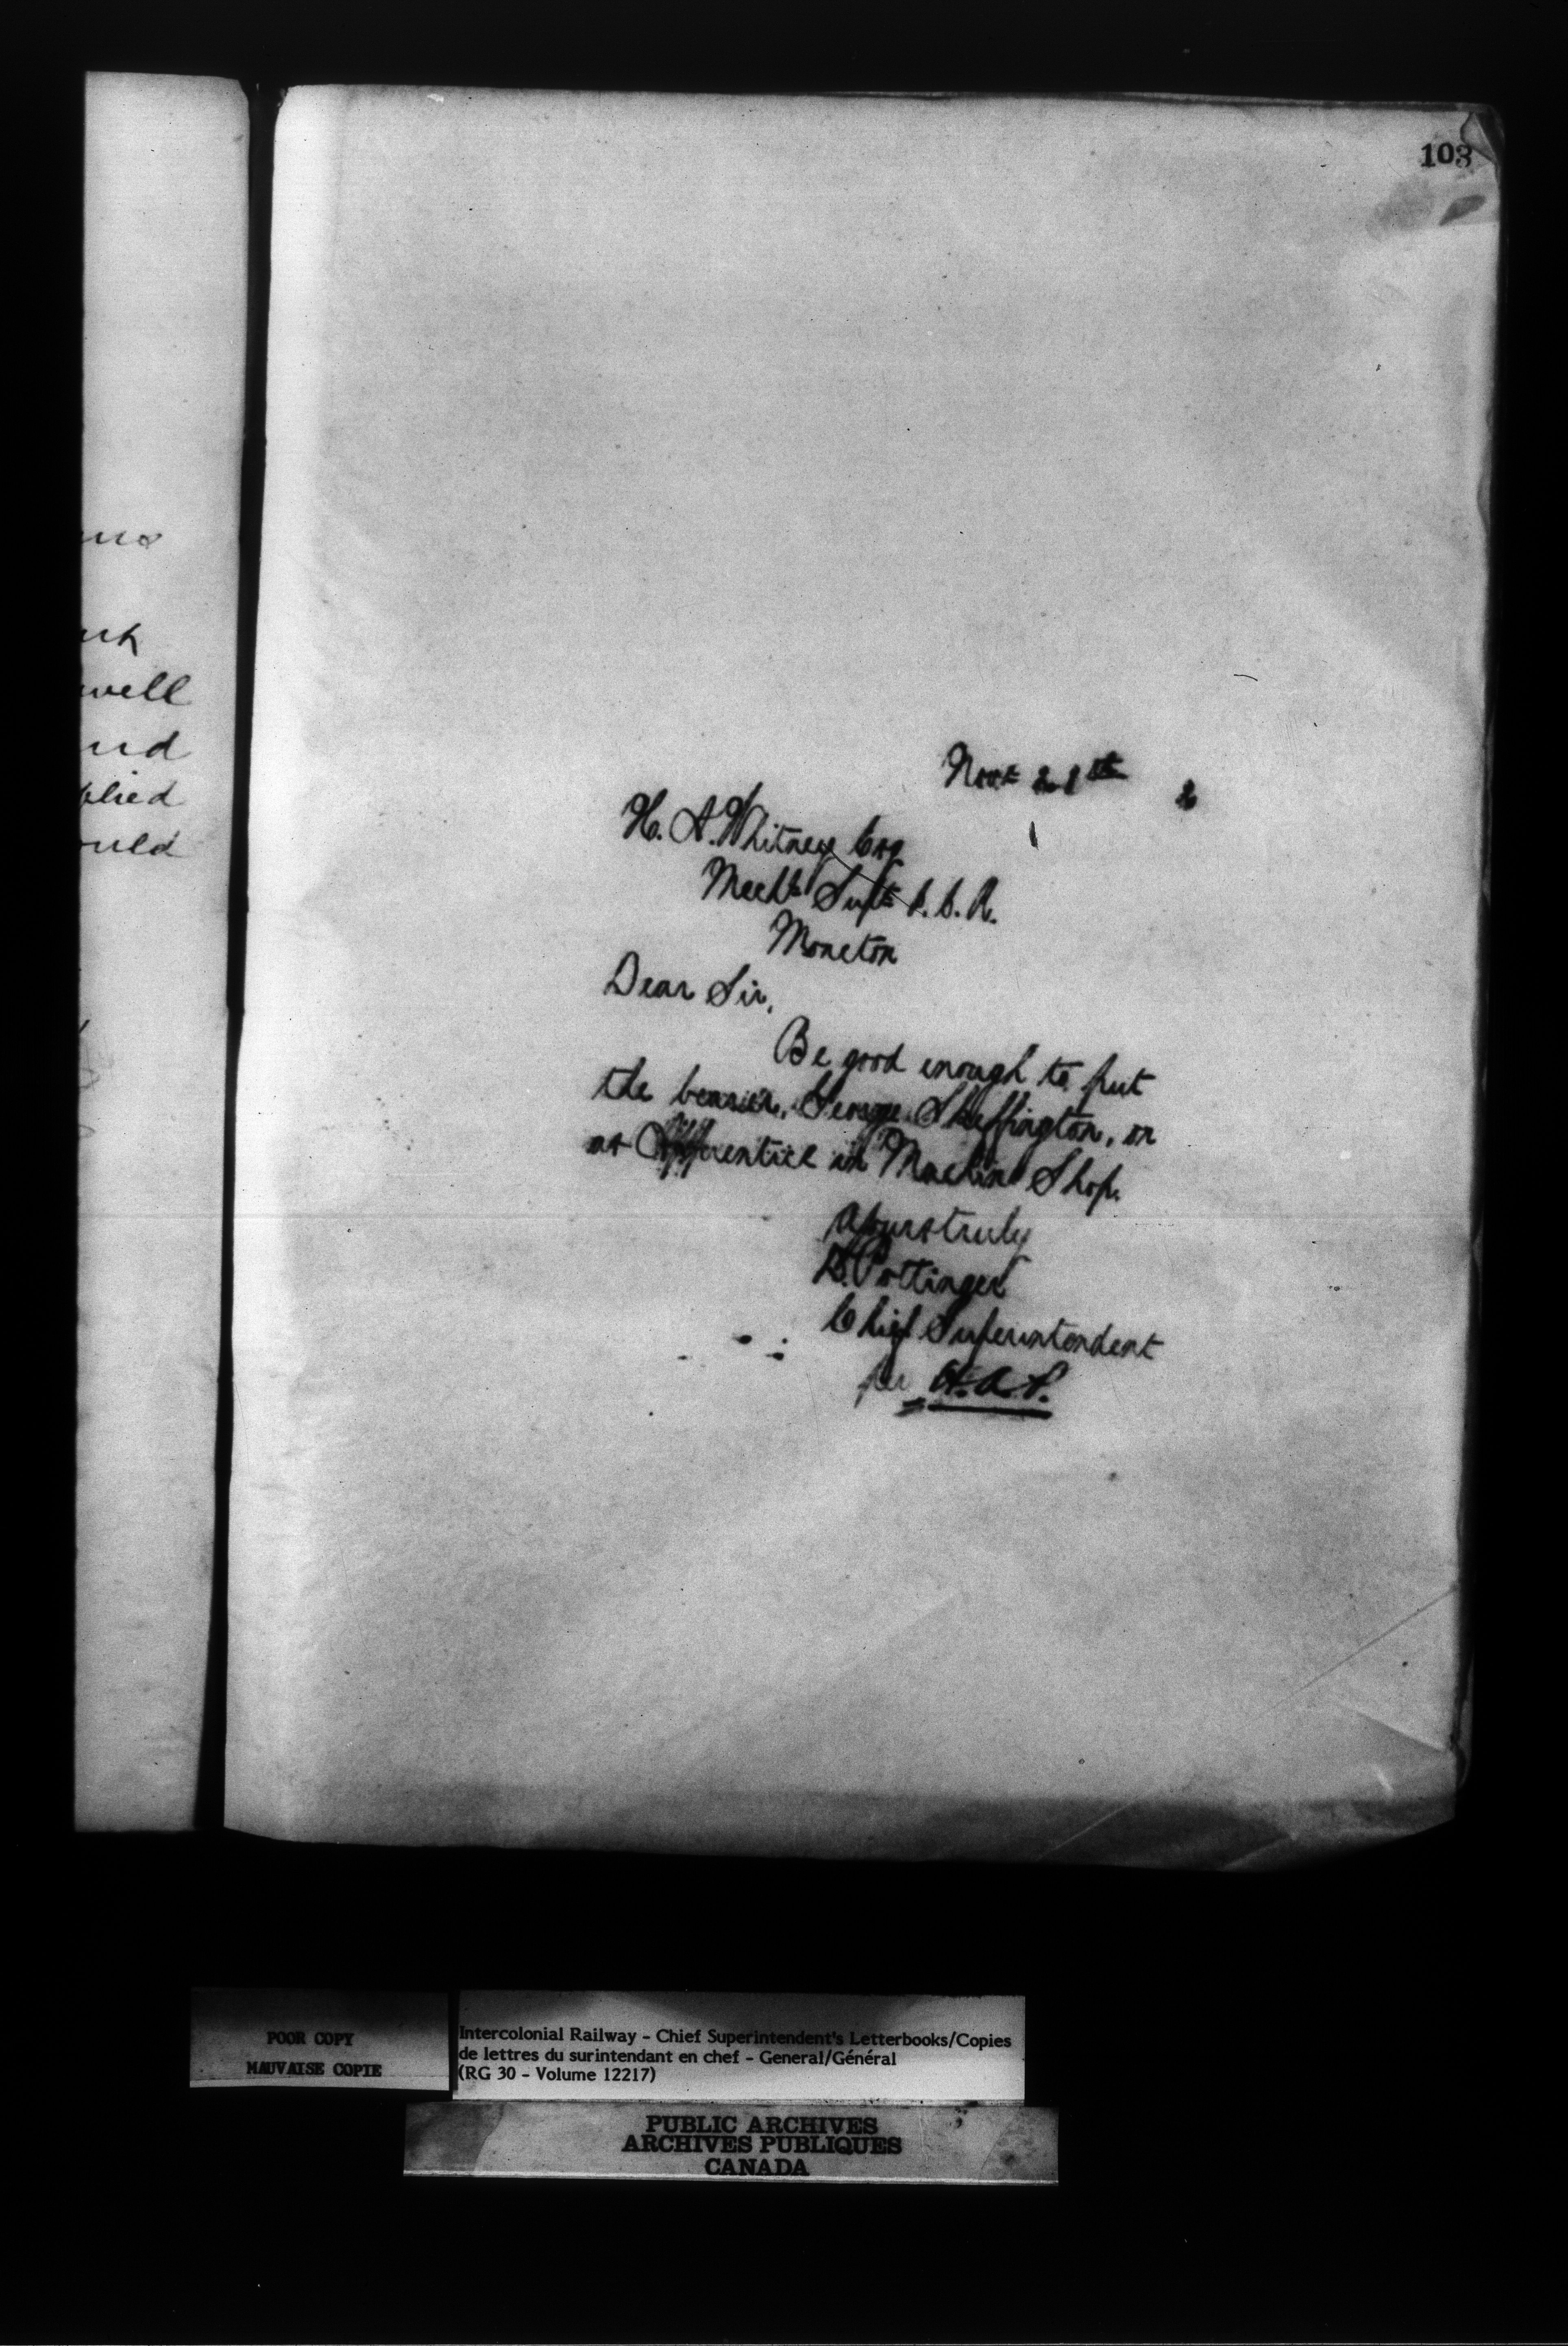 103
Nov 21st 2
H. A. Whitney Esq
Mechl Supt I.C.R.
Moncton
Dear Sir,
Be good enough to put
the bearer, George Skeffington, on
as Apprentice in Machine Shop.
Yours truly
D. Pottinger
Chief Superintendent
per H.A.P.
well
plied
POOR COPY
MAUVAISE COPIE
Intercolonial Railway - Chief Superintendent's Letterbooks/Copies
de lettres du surintendant en chef - General/Général
(RG 30 - Volume 12217)
PUBLIC ARCHIVES
ARCHIVES PUBLIQUES
CANADA